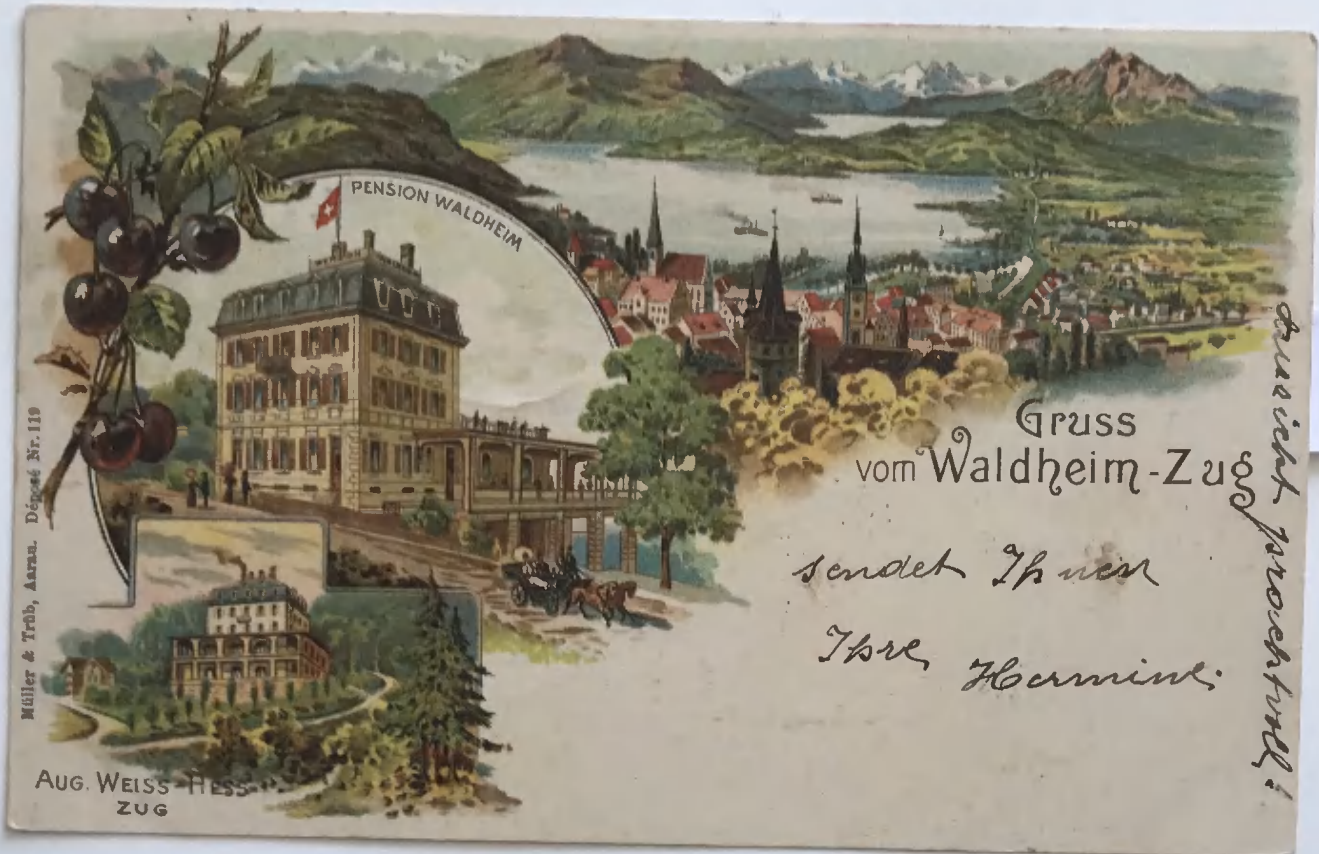 PENSION WALDHEIM
Gruss
vom Waldheim-Zug
sendet Ihnen
Ihre Hermine.
Aussicht prachtvoll!
Müller & Trüb, Aarau. Déposé Nr. 119
AUG. WEISS-HESS
ZUG